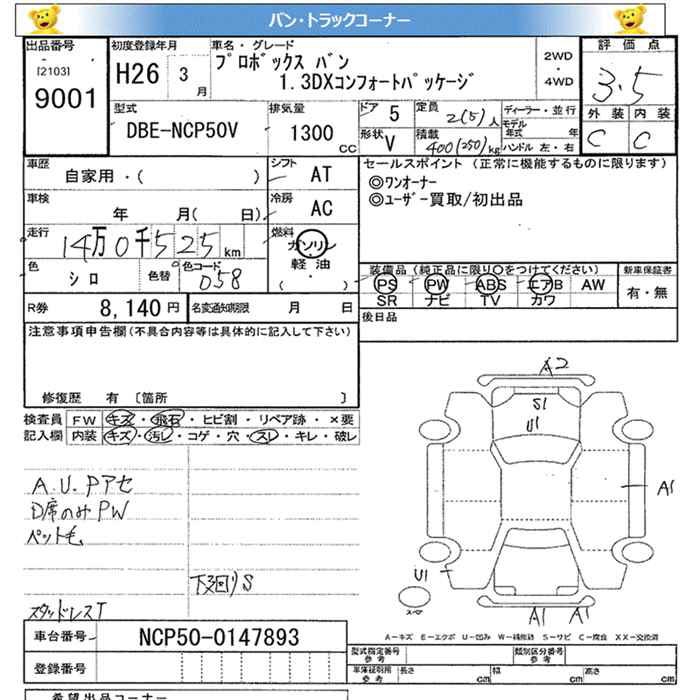 バン・トラックコーナー
出品番号
[2103]
9001
初度登録年月
H26 3月
車名・グレード
プロボックス バン
1.3DXコンフォートパッケージ
2WD
4WD
評価点
3.5
外装 内装
C C
型式
DBE-NCP50V
排気量
1300 CC
ドア 5
形状 V
定員 2(5)人
積載 400(250)kg
ディーラー・並行
モデル年式 年
ハンドル 左・右
車歴
自家用・( )
シフト AT
車検
年 月(日)
冷房 AC
走行
14万0千525km
燃料
ガソリン
軽油
( )
色
シロ
色替
色コード
058
R券 8,140円
名変通知期限 月 日
セールスポイント (正常に機能するものに限ります)
◎ワンオーナー
◎ユーザー買取/初出品
装備品 (純正品に限り○をつけてください)
PS PW ABS エアB AW
SR ナビ TV カワ
新車保証書
有・無
後日品
注意事項申告欄(不具合内容等は具体的に記入して下さい)
修復歴 有 [箇所 ]
検査員記入欄
FW キズ・飛石・ヒビ割・リペア跡・×要
内装 キズ・汚レ・コゲ・穴・スレ・キレ・破レ
A.U.Pアセ
D席のみPW
ペット毛
下廻りS
スタッドレスT
A2
S1
U1
A1
U1
スペア
A1 A1
A-キズ E-エクボ U-凹み W-補修跡 S-サビ C-腐食 XX-交換済
車台番号 NCP50-0147893
登録番号
型式指定番号 参考
類別区分番号 参考
車体証明用 参考
長さ cm
幅 cm
高さ cm
希望出品コーナー